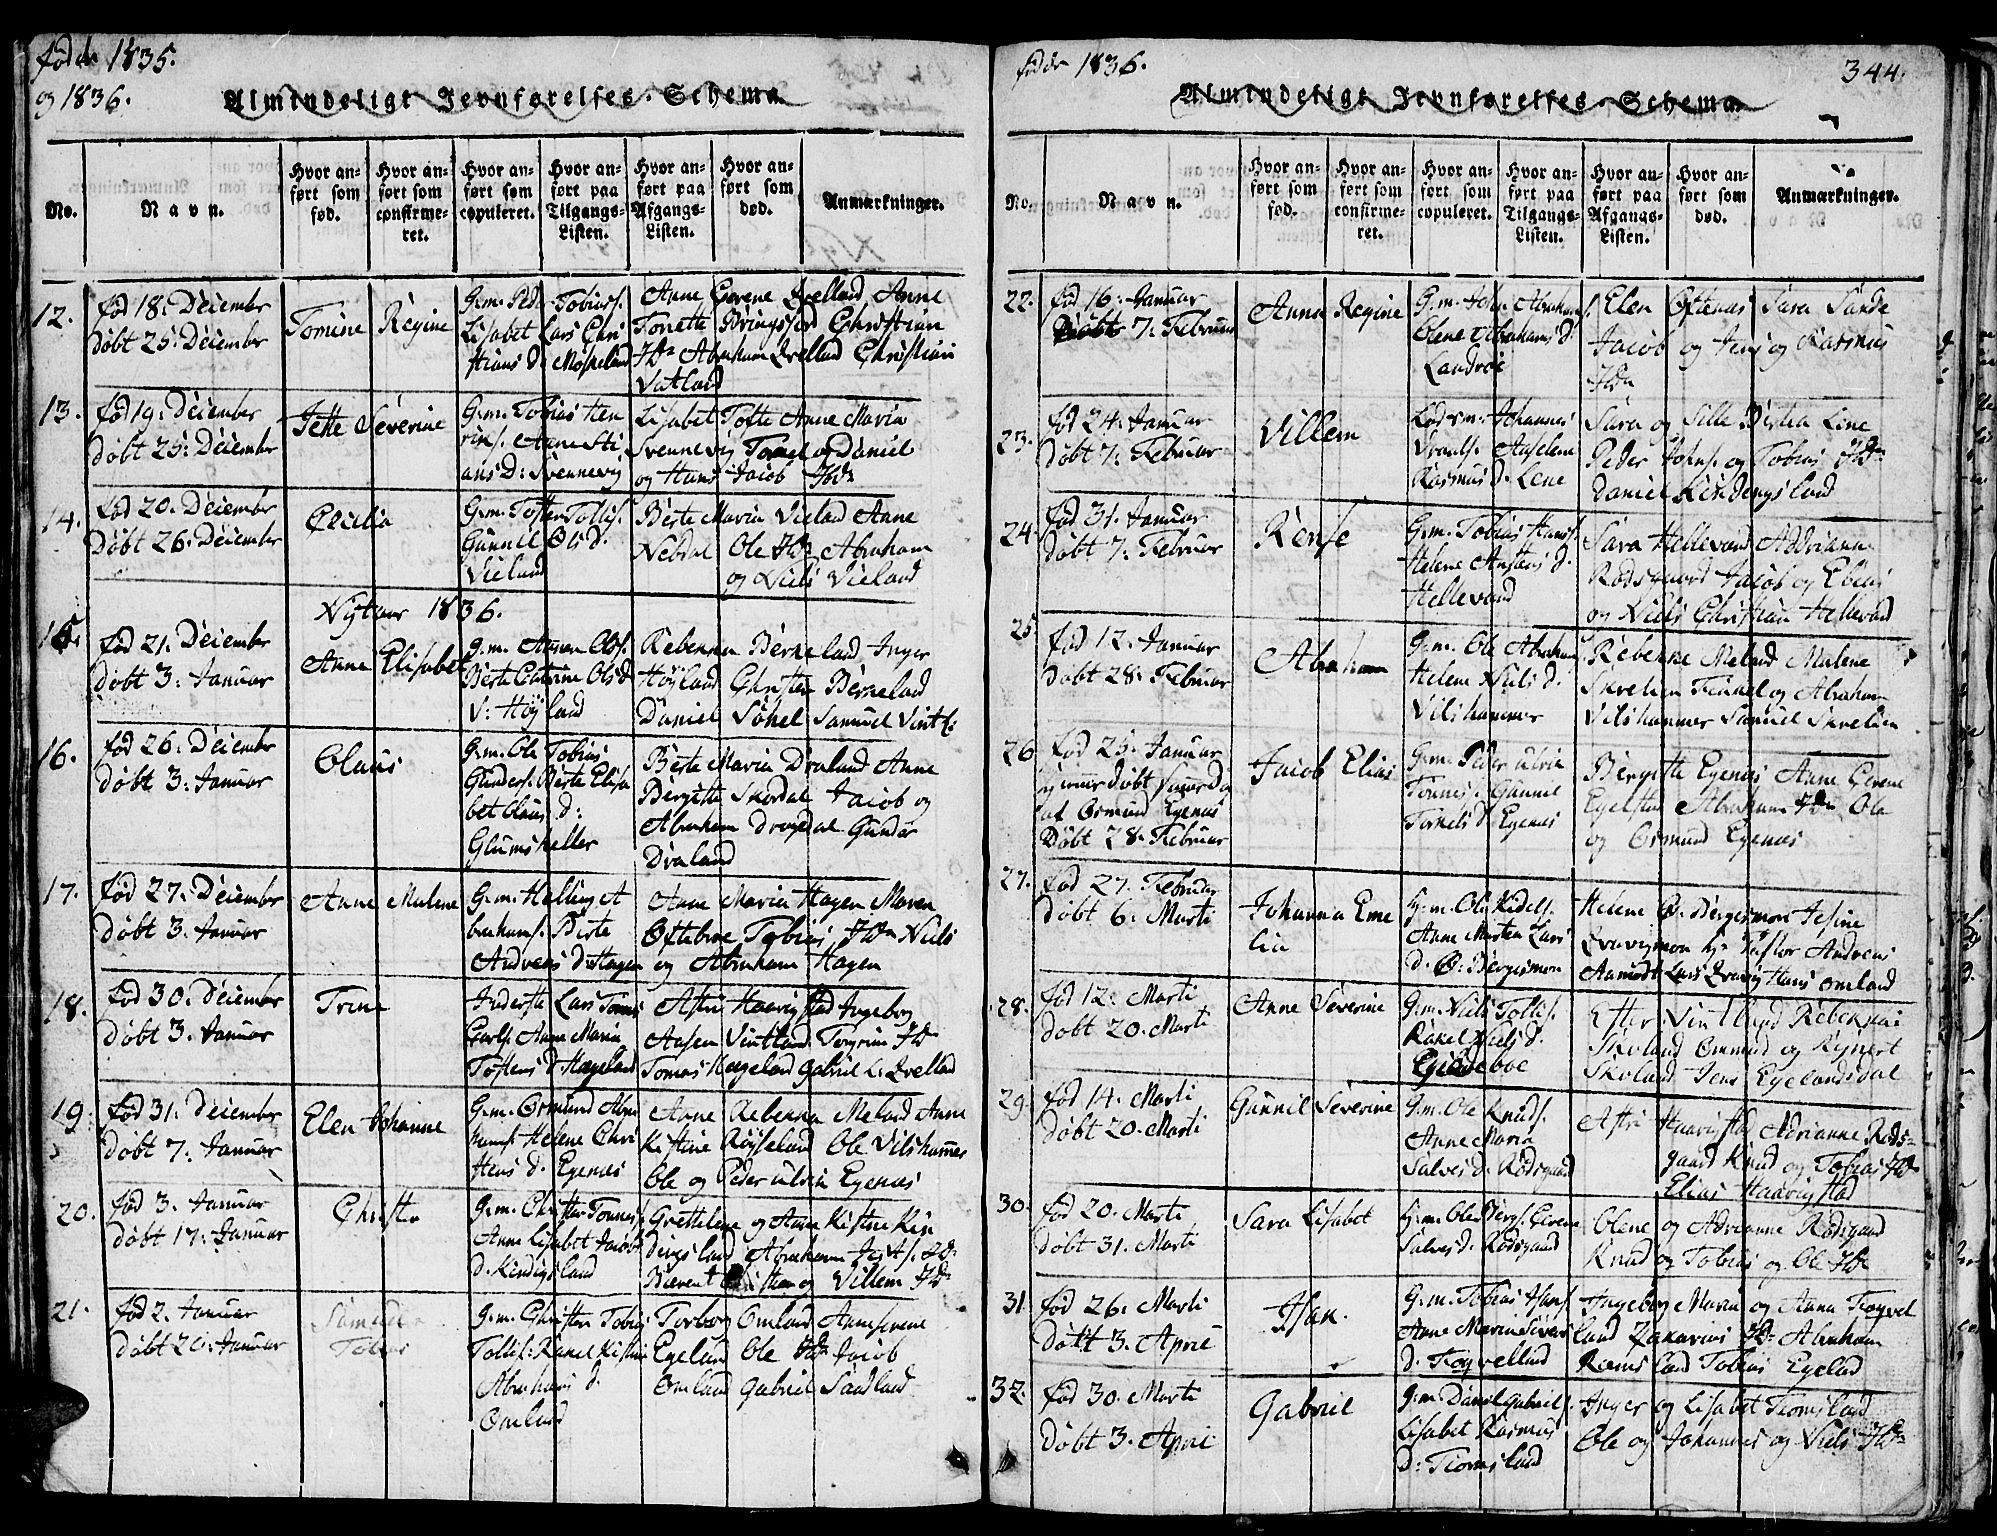 føde 1835.
og 1836.
Almindeligt Jevnførelses-Schema.
No.
Navn.
Hvor an-
ført som
fød.
Hvor an-
ført som
confirme-
ret.
Hvor an-
ført som
copuleret.
Hvor an-
ført paa
Tilgangs-
Listen.
Hvor an-
ført paa
Afgangs-
Listen.
Hvor an-
ført som
død.
Anmærkninger.
12.
fød 18. Decembr
døbt 25. December
Tomine Regine
G.m. Peder Tobiass.
Lisabet Lars Chri
stians D. Moseland
Anne Gerene Qvelland Anne
Torette Bringsjord Christian
Abraham Qvelland Christian
Vatland
13.
fød 19. December
døbt 25. December
Jette Severine
G.m. Tobias Hen
riks. Anne Sti
ans D: Svennevig
Lisabet Tofte Anne Maria
Svennevig Tomel og Daniel
og Hans Jacob
14.
fød 20. December
Døbt 26. December
Cecilia
G.m. Tosten Tollifs.
Gunnil Ols d.
Vieland
Berte Maria Vieland Anne
Nebdal Ole Abraham
og Niels Vieland
Nytaar 1836.
15.
fød 21. December
døbt 3. Januar
Anne Elisabet
G.m. Aanen Ols.
Berte Catrine Ols D
V: Høyland
Rebenna Berneland Inger
Høyland Christen Berneland
Daniel Søhel Samuel Vintl:
16.
fød 26. Decembr
døbt 3. Januar
Olaus
G.m. Ole Tobias
Gunders. Berte Elisa
bet Olaus D:
Glumsheller
Berte Maria Draland Anne
Bergitte Skordal Jacob og
Abraham Drogedal Gunder
Draland
17.
fød 27. December
døbt 3. Januar
Anne Malene
G.m. Helling A
brahams. Berte
Andreas D. Hagen
Anne Maria Hagen Maren
Oftebroe Tobias Niels
og Abraham Hagen
18.
fød 30. December
døbt 3. Januar
Trine
Inderste Lars Tomas
Anne Maria
Tostens D. Hægeland
Asri Haavigstad Ingebor
Aasen Vintland Torgrim
Tomas Hægeland Gabriel L. Qvelland
19.
fød 31. December
døbt 7. Januar
Elen Johanne
G.m. Ormund Abra
hams. Helene Chri
stens d. Egenæs
Anne Rebenna Meland Anne
Kistine Røyseland Ole Vilshammer
Ole og Peder Ulrik Egenæs
20.
fød 3. Januar
døbt 17. Januar
Christen
G.m. Christen Tonnes.
Anne Lisabet Jacobs
d. Kindigsland
Grettelene og Anne Kistine Kin
digsland Abraham
og Villem
21.
fød 2. Januar
døbt 20. Januar
Tobias
G.m. Christen Tobias
Tollifs. Rakel Kistine
Abrahams d.
Omland
Torbor Omland Anne Serene
Egeland Ole Jacob
Omland Gabriel Sandland
føde 1836.
344.
Almindeligt Jevnførelses-Schema.
No.
Navn.
Hvor an-
ført som
fød.
Hvor an-
ført som
confirme-
ret.
Hvor an-
ført som
copuleret.
Hvor an-
ført paa
Tilgangs-
Listen.
Hvor an-
ført paa
Afgangs-
Listen.
Hvor an-
ført som
død.
Anmærkninger.
22.
fød 16. Januar
Døbt 7. Februar
Anna Regine
G.m. John Abraham
Olene Abrahams d.
Landrøe
Elen Oftenæs Sara Sande
Jacob og Jens og Rasmus
23.
fød 24. Januar
døbt 7. Februar
Villem
Johannes
Aaselene
Rasmus d. Lene
Sara og Sille Birkeli Line
Peder Johns. og Tobias
Daniel Kindingsland
24
fød 31. Januar
døbt 7. Februar
Rense
G.m. Tobias Hans.
Helene Anstens d.
Hellevand
Sara Hellevand Addrianne
Rødsgaard Jacob og Elias
og Niels Christian Hellevand
25
fød 12. Januar
døbt 28. Februar
Abraham
G.m. Ole Abraham
Helene Niels d.
Vilshammer
Rebenne Meland Malene
Skrelien Finkel og Abraham
Vilshammer Samuel Skrelien
26
fød 25. Januar
hjemmedøbt samme D
af Ormund Egenæs
Døbt 28. Februar
Jacob Elias
G.m. Peder Ulrik
Tonnes. Gunnil
Torkels d. Egenæs
Bergitte Egenæs Anne Gerene
Egelstad Abraham Ole
og Ormund Egenæs
27.
fød 27. Februar
døbt 6. Marti
Johanna Eme
lia
H.m. Ole Kidels.
Anne Marten Lars
d. Ø: Bergesmoen
Helene Ø. Bergesmoen Jesine
Qvavigmoen Hr. Pastor Andreas
Aamodt Lars Qvavig Hans Omland
28.
fød 12. Marti
døbt 20. Marti
Anne Severine
G.m. Niels Tollifs.
Rakel Niels d.
Egeldeboe
Ester Vintland Rebenna
Skoland Ommund og Reinert
Skoland Jens Egelandsdal
29.
fød 14. Marti
døbt 20. Marti
Gunnil Severine
G.m. Ole Knuds.
Anne Maria
Salves d. Rødsgaard
Asri Haavigstad Adrianne Røds-
gaard Knud og Tobias
Elias Haavigstad
30.
fød 20. Marti
døbt 31. Marti
Sara Lisabet
H.m. Ole Bergs. Gerene
Salves d. Rødsgaard
Olene og Adrianne Rødsgaard
Knud og Tobias og Ole
31
fød 26. Marti
døbt 3. April
Isan.
G.m. Tobias Isans.
Anne Maria Sivar
d. Fogvelland
Ingebor Maria og Anna Fogvel
land Zakarias Abraham
Ramsland Tobias Egeland
32.
fød 30. Marti
døbt 3. April
Gabriel
G.m. Daniel Gabriels.
Lisabet Rasmus
d: Tiomsland
Inger og Lisabet Tiomsland
Ole og Johannes og Niels